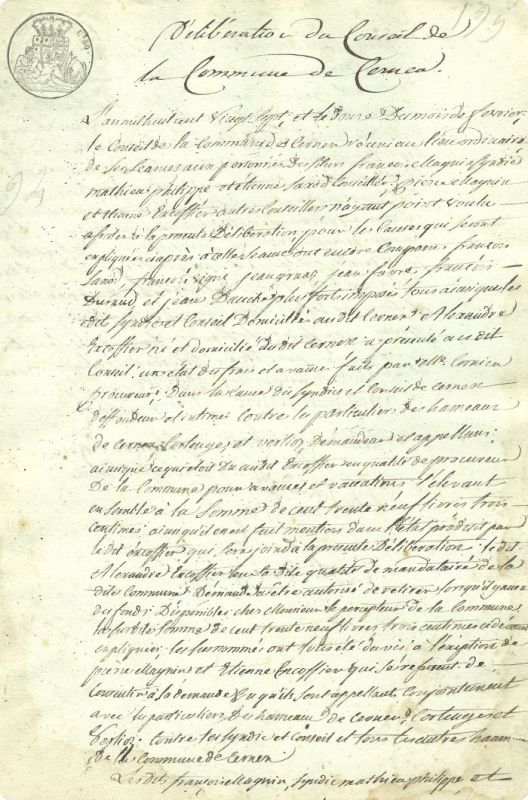 195
Délibération du Conseil de
la Commune de Cernex.
L'an mil huit cent vingt sept, et le douze du mois de fevrier,
le Conseil de la Commune de Cernex réuni au lieu ordinaire
de ses séances aux personnes des sieurs françois Magnin Syndic
mathieu philippe et etienne Sarod Conseillers, pierre Magnin
et etienne Excoffier autres Conseillers n'ayant point voulu
à la présente Délibération pour les causes qui seront
expliquées ci après à cette séance ont encore comparu françois
Sarod françois vigne, jean gruaz, jean favre françois
Durand et jean plus forts imposés tous ainsi que les
dits Syndic et Conseil domiciliés audit Cernex Alexandre
Excoffier né et domicilié audit Cernex a présenté au dit
Conseil un état des frais et avances faits par
procureur, dans la cause des Syndics et Conseil de Cernex
deffendeur et intimés contre les particuliers des hameaux
de Cernex, Cortenges, et verlioz demandeurs et appellants.
ainsi que ce qui étoit du audit Excoffier en qualité de procureur
de la Commune pour avances et vacations s'élevant
ensemble à la somme de cent trente neuf livres trois
centimes ainsi qu'il en est fait mention dans l'état produit par
le dit excoffier qui sera joint à la présente Délibération, le dit
Alexandre Excoffier en la dite qualité de mandataire de la
dite Commune Demande d'être autorisé de retirer lorsqu'il y aura
du fond disponibles chez Monsieur le percepteur de la Commune
la susdite somme de cent trente neuf livres trois centimes
expliquée; les susnommés ont tous été d'avis à l'exeption de
pierre Magnin et Etienne Excoffier qui se refusent de
consentir à la demande qu'ils sont appellant conjointement
avec les particuliers des hameau de Cernex, Cortenges et
Verlioz contre les Syndic et Conseil et tous les autres hameaux
de la Commune de Cernex.
Les dits françois Magnin, Syndic mathieu philippe et